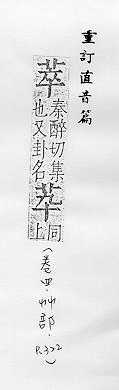 重訂直音篇
萃
秦醉切集
也又卦名
同
上
(卷四·艸部·P.322)